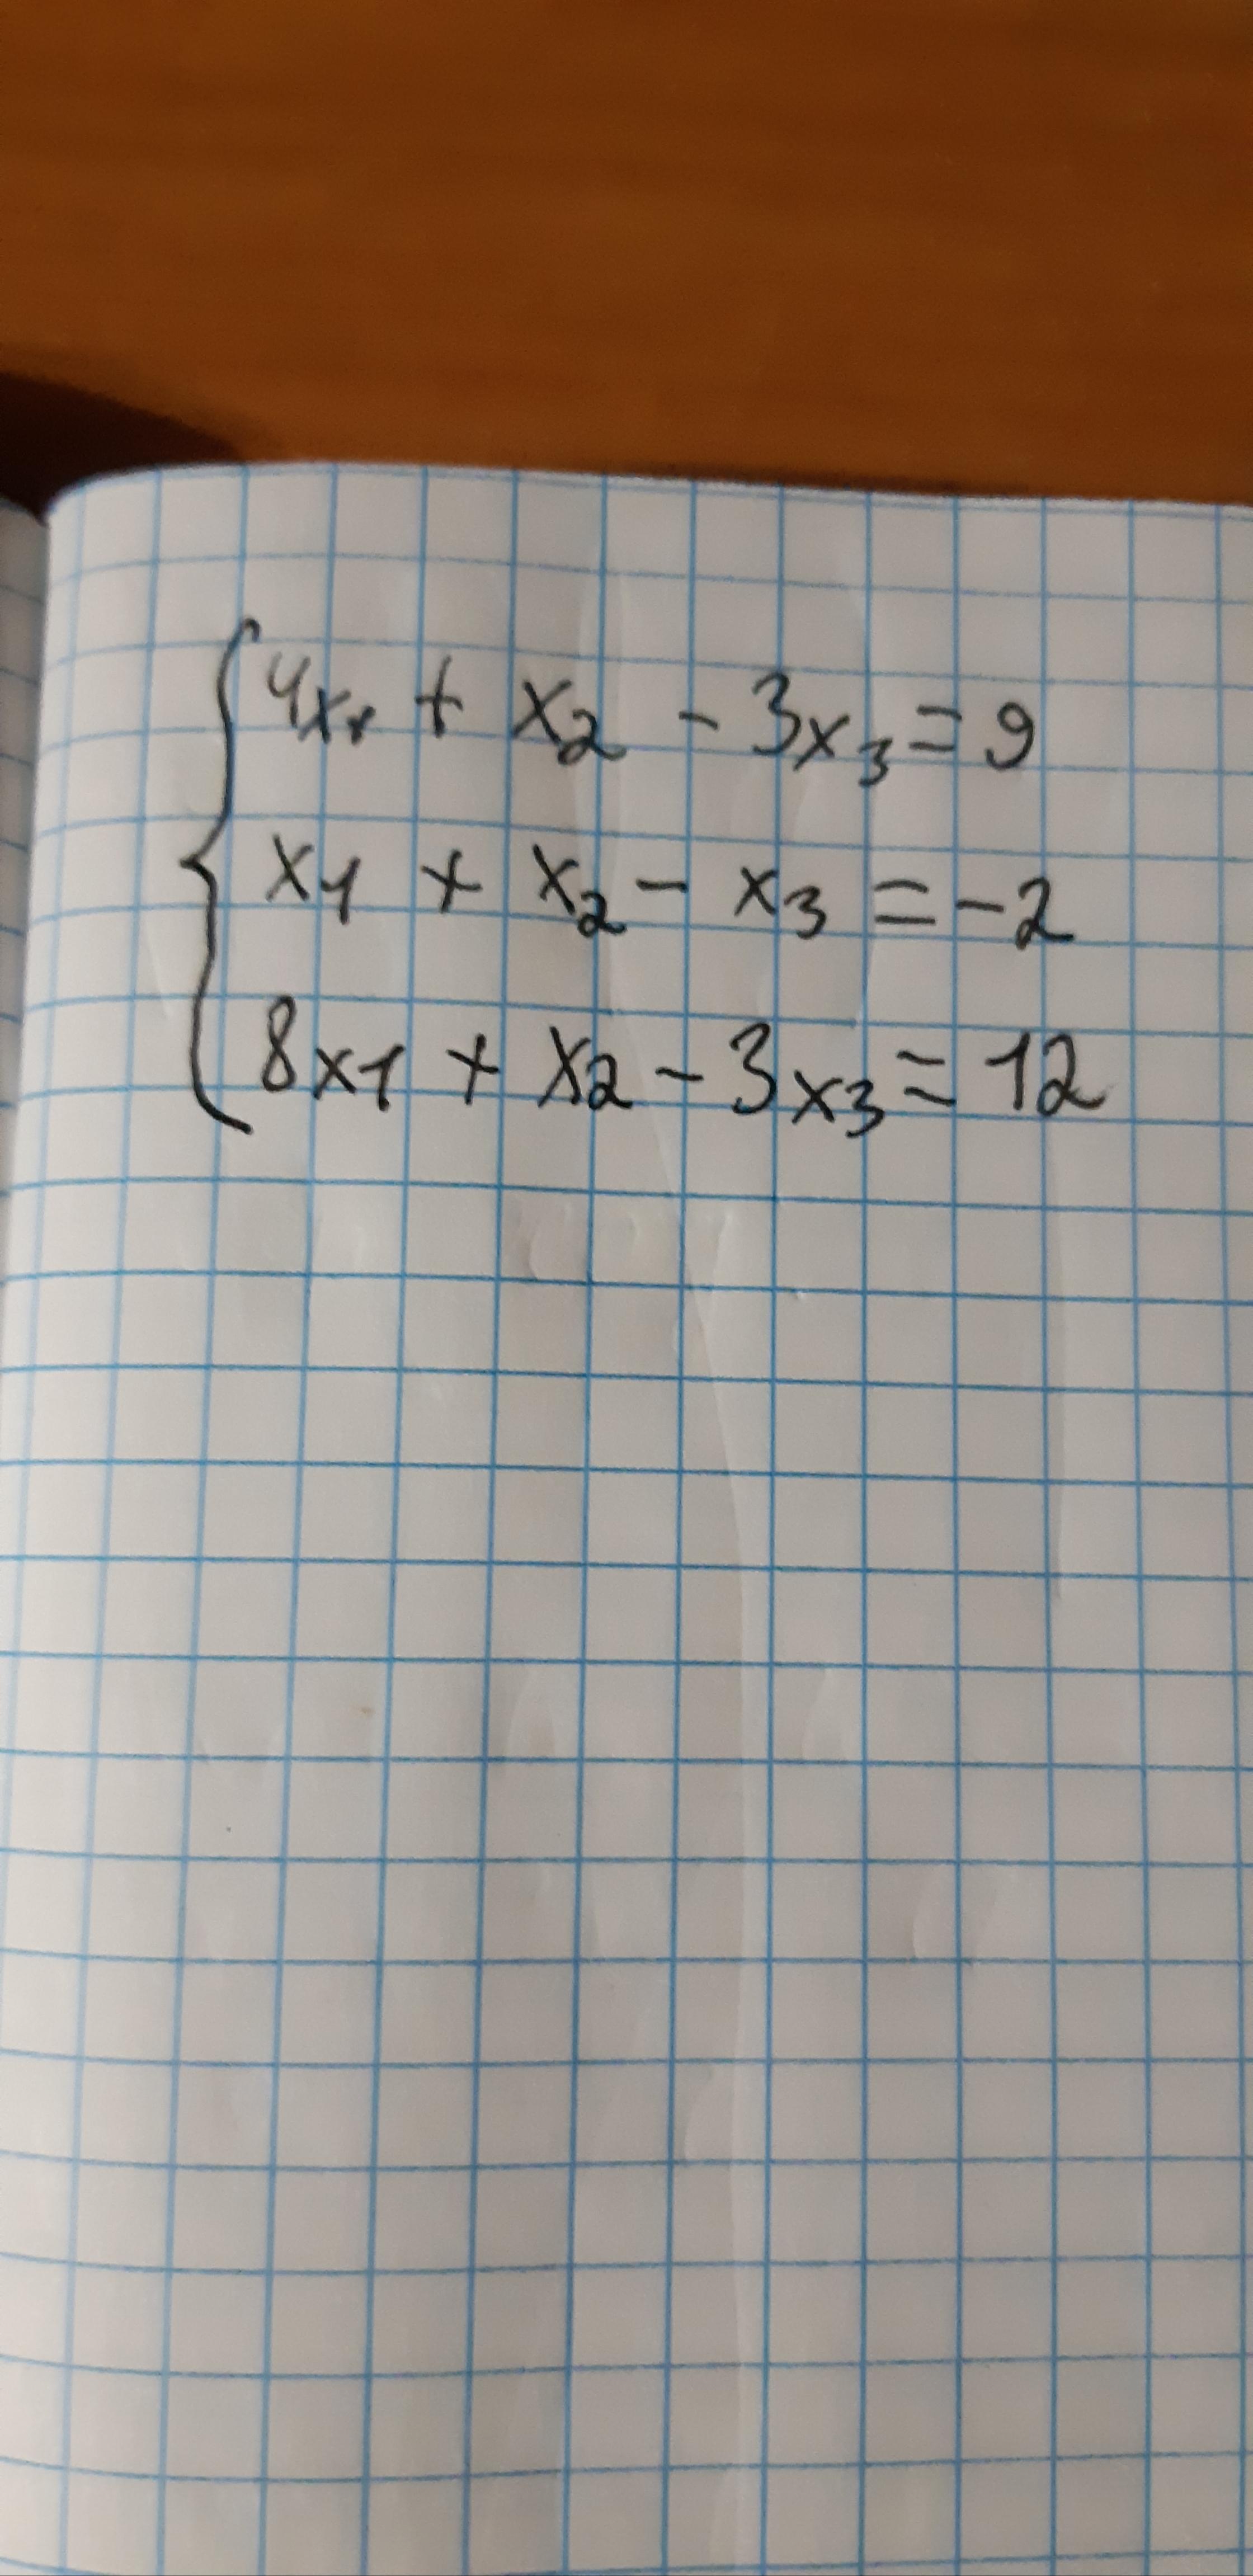 4x₁ + x₂ - 3x₃ = 9
x₁ + x₂ - x₃ = -2
8x₁ + x₂ - 3x₃ = 12